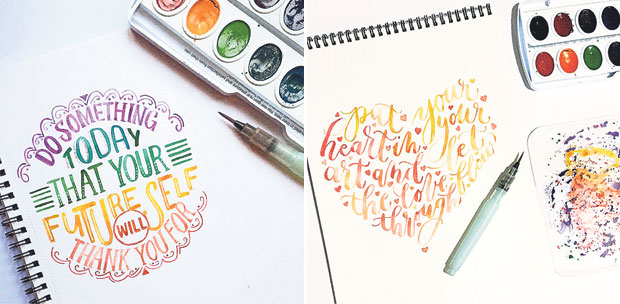 DO SOMETHING
TODAY
THAT YOUR
FUTURE SELF
WILL
THANK YOU FOR
put your
heart in your
art and let
the love flow
through